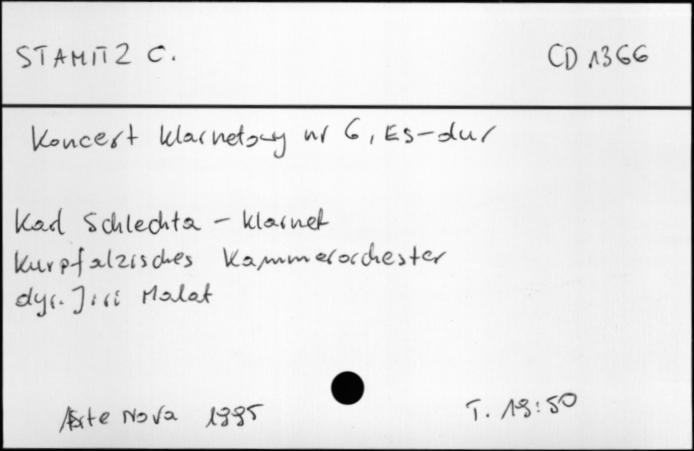 STAMITZ C. CD 1366
Koncert klarnetowy nr 6, Es-dur
Karl Schlechta - klarnet
Kurpfalzisches Kammerorchester
dyr. Jiri Malat
Arte Nova 1995 T. 19:50